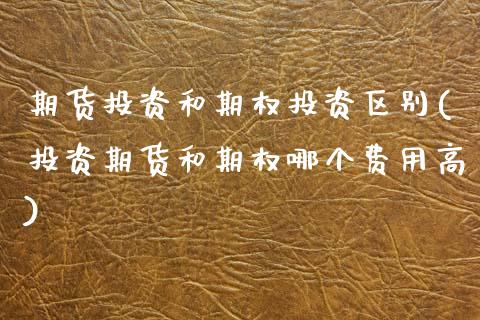 期货投资和期权投资区别(
投资期货和期权哪个费用高
)